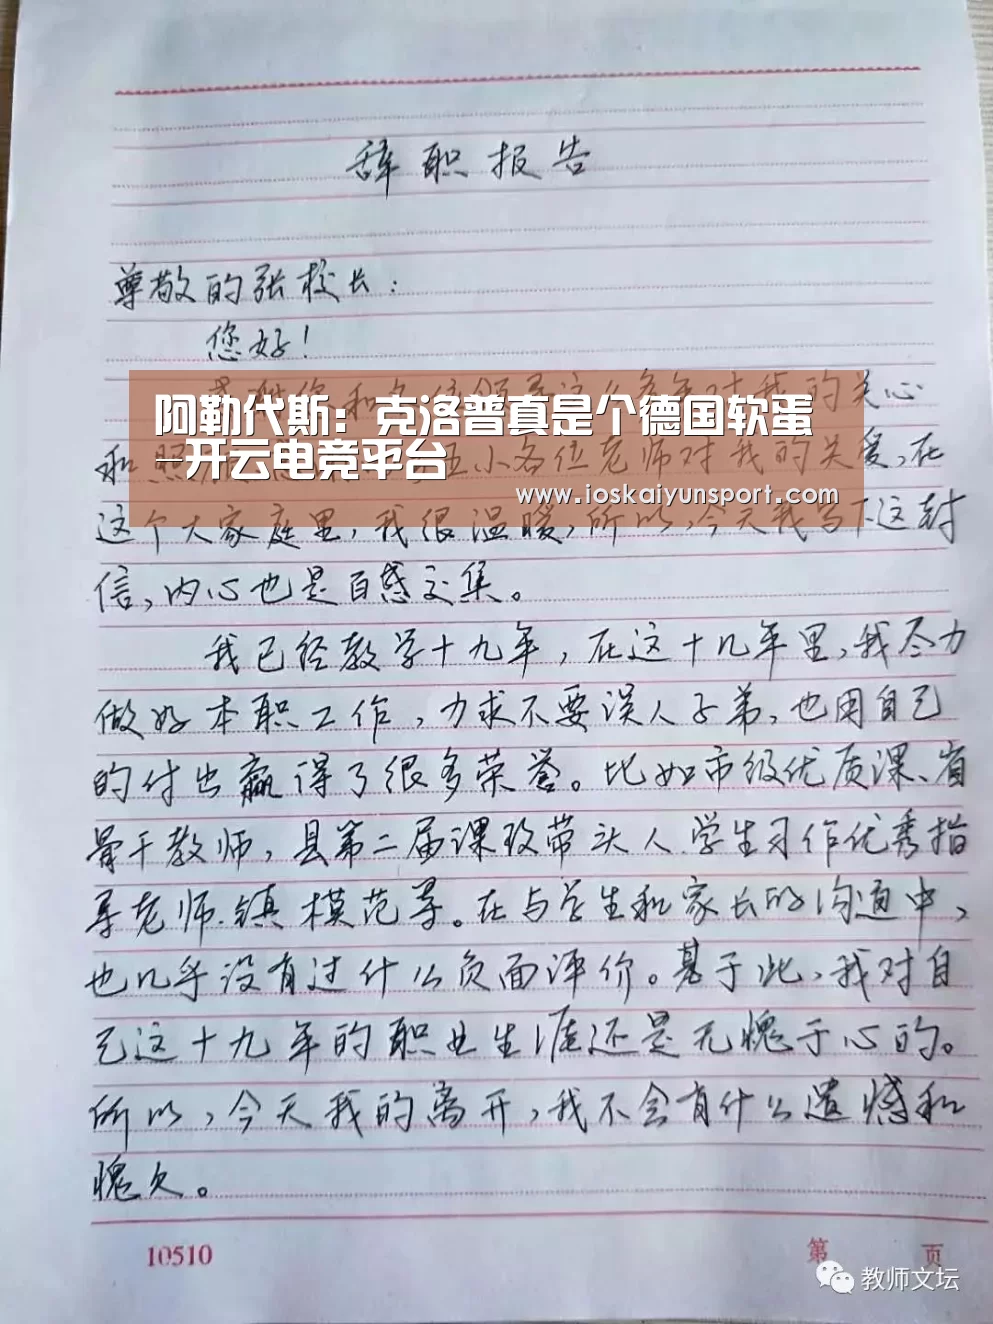 辞职报告
尊敬的张校长：
您好！
感谢您和各位领导这么多年对我的关心
阿勒代斯：克洛普真是个德国软蛋
-开云电竞平台
和照 五小各位老师对我的关爱，在
www.ioskaiyunsport.com
这个大家庭里，我很温暖，所以，今天我写下这封
信，内心也是百感交集。
我已经教学十九年，在这十几年里，我尽力
做好本职工作，力求不要误人子弟，也用自己
的付出赢得了很多荣誉。比如市级优质课、省
骨干教师，县第二届课改带头人、学生习作优秀指
导老师、镇模范等。在与学生和家长的沟通中，
也几乎没有过什么负面评价。基于此，我对自
己这十九年的职业生涯还是无愧于心的。
所以，今天我的离开，我不会有什么遗憾和
愧欠。
10510
第 页
教师文坛